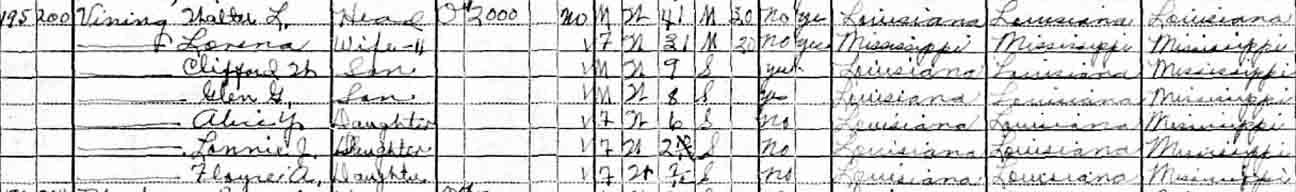 195 200 Vining Walter L. Head O 3000 no M W 41 M 20 no yes Louisiana Louisiana Louisiana
Lorena Wife-H F W 31 M 20 no yes Mississippi Mississippi Mississippi
Clifford W Son M W 9 S yes Louisiana Louisiana Mississippi
Glen G. Son M W 8 S yes Louisiana Louisiana Mississippi
Alice Y. Daughter F W 6 S no Louisiana Louisiana Mississippi
Lonnie J. Daughter F W S no Louisiana Louisiana Mississippi
A. Daughter F W S no Louisiana Louisiana Mississippi